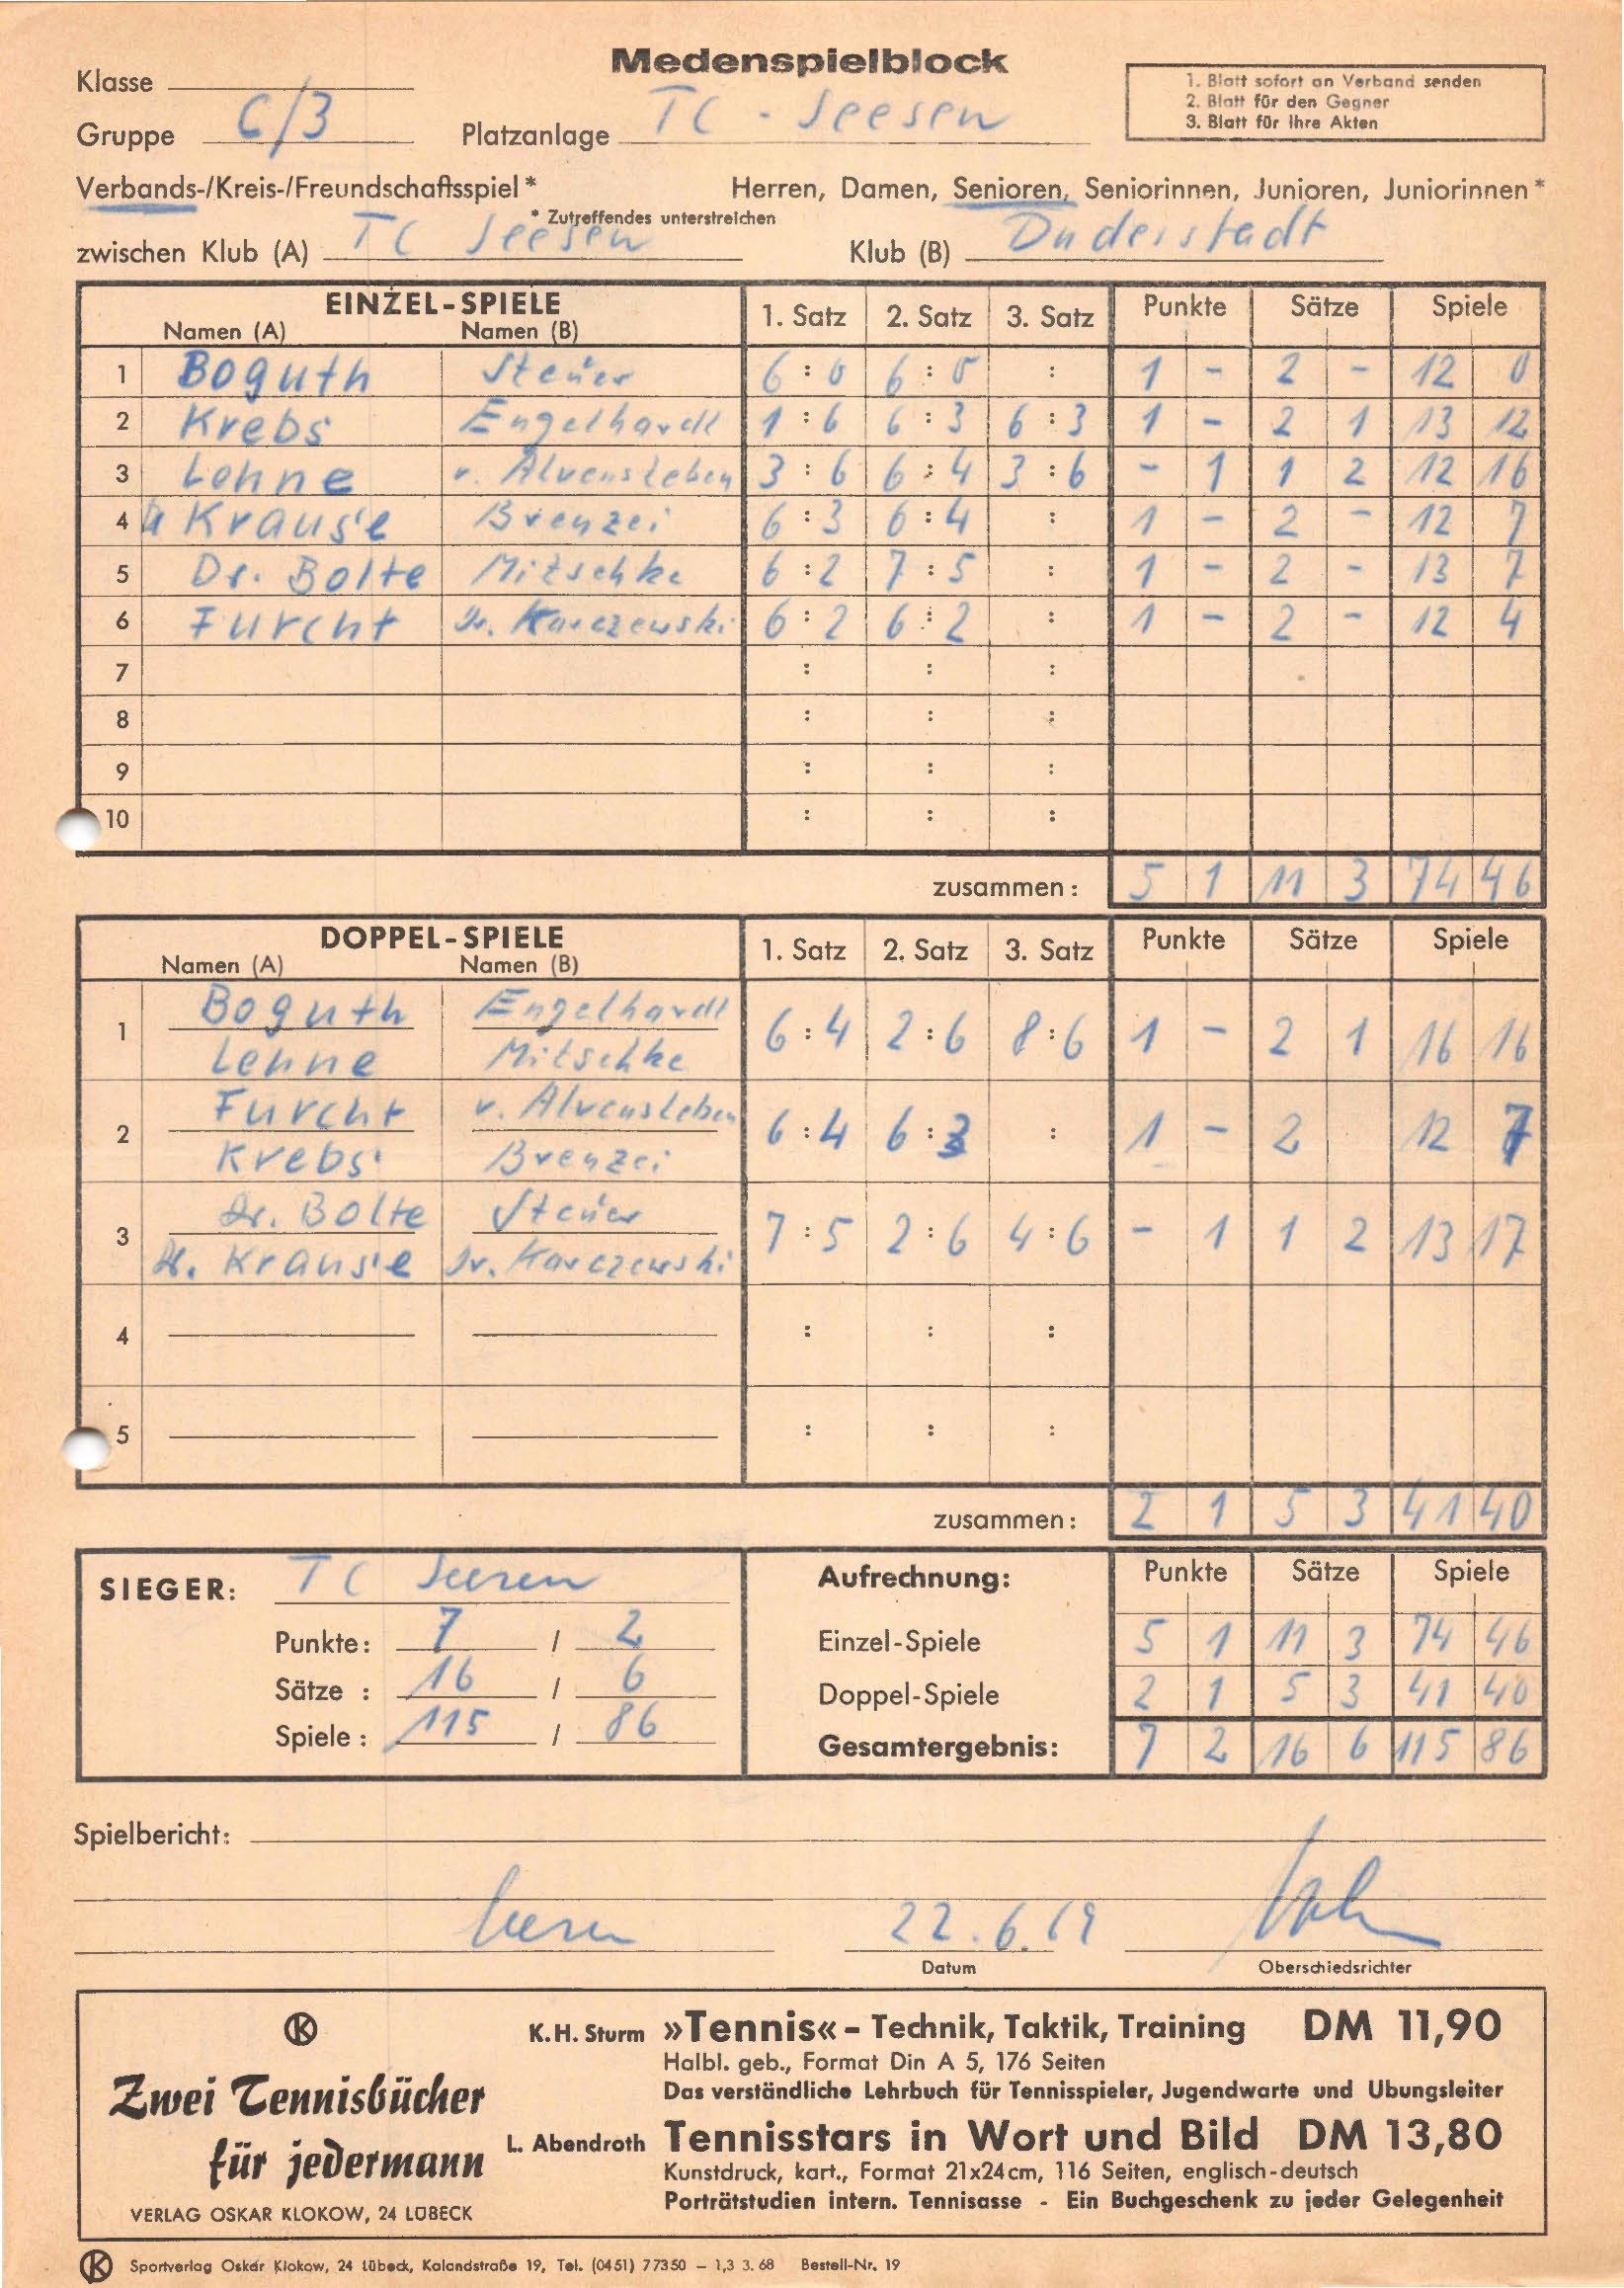 Medenspielblock
Klasse
Gruppe C/3 Platzanlage TC - Seesen
1. Blatt sofort an Verband senden
2. Blatt für den Gegner
3. Blatt für Ihre Akten
Verbands-/Kreis-/Freundschaftsspiel* Herren, Damen, Senioren, Seniorinnen, Junioren, Juniorinnen*
* Zutreffendes unterstreichen
zwischen Klub (A) TC Seesen Klub (B) Duderstadt
EINZEL-SPIELE 1. Satz 2. Satz 3. Satz Punkte Sätze Spiele
Namen (A) Namen (B)
1 Boguth Steuer 6:0 6:0 : 1 - 2 - 12 0
2 Krebs Engelhardt 1:6 6:3 6:3 1 - 2 1 13 12
3 Lehne v. Alvensleben 3:6 6:4 3:6 - 1 1 2 12 16
4 Krause Brenzei 6:3 6:4 : 1 - 2 - 12 7
5 Dr. Bolte Mitschke 6:2 7:5 : 1 - 2 - 13 7
6 Furcht Dr. Karczewski 6:2 6:2 : 1 - 2 - 12 4
7 : : :
8 : : :
9 : : :
10 : : :
zusammen: 5 1 11 3 74 46
DOPPEL-SPIELE 1. Satz 2. Satz 3. Satz Punkte Sätze Spiele
Namen (A) Namen (B)
Boguth Engelhardt
1 6:4 2:6 8:6 1 - 2 1 16 16
Lehne Mitschke
Furcht v. Alvensleben
2 6:4 6:3 : 1 - 2 12 7
Krebs Brenzei
Dr. Bolte Steuer
3 7:5 2:6 4:6 - 1 1 2 13 17
Krause Dr. Karczewski
4 : : :
5 : : :
zusammen: 2 1 5 3 41 40
SIEGER: TC Seesen
Punkte: 7 / 2
Sätze : 16 / 6
Spiele : 115 / 86
Aufrechnung: Punkte Sätze Spiele
Einzel-Spiele 5 1 11 3 74 46
Doppel-Spiele 2 1 5 3 41 40
Gesamtergebnis: 7 2 16 6 115 86
Spielbericht:
22.6.69
Datum Oberschiedsrichter
K
Zwei Tennisbücher
für jedermann
VERLAG OSKAR KLOKOW, 24 LÜBECK
K.H. Sturm »Tennis« - Technik, Taktik, Training DM 11,90
Halbl. geb., Format Din A 5, 176 Seiten
Das verständliche Lehrbuch für Tennisspieler, Jugendwarte und Übungsleiter
L. Abendroth Tennisstars in Wort und Bild DM 13,80
Kunstdruck, kart., Format 21x24cm, 116 Seiten, englisch-deutsch
Porträtstudien intern. Tennisasse - Ein Buchgeschenk zu jeder Gelegenheit
K Sportverlag Oskar Klokow, 24 Lübeck, Kalandstraße 19, Tel. (0451) 77350 – 1,3 3. 68 Bestell-Nr. 19